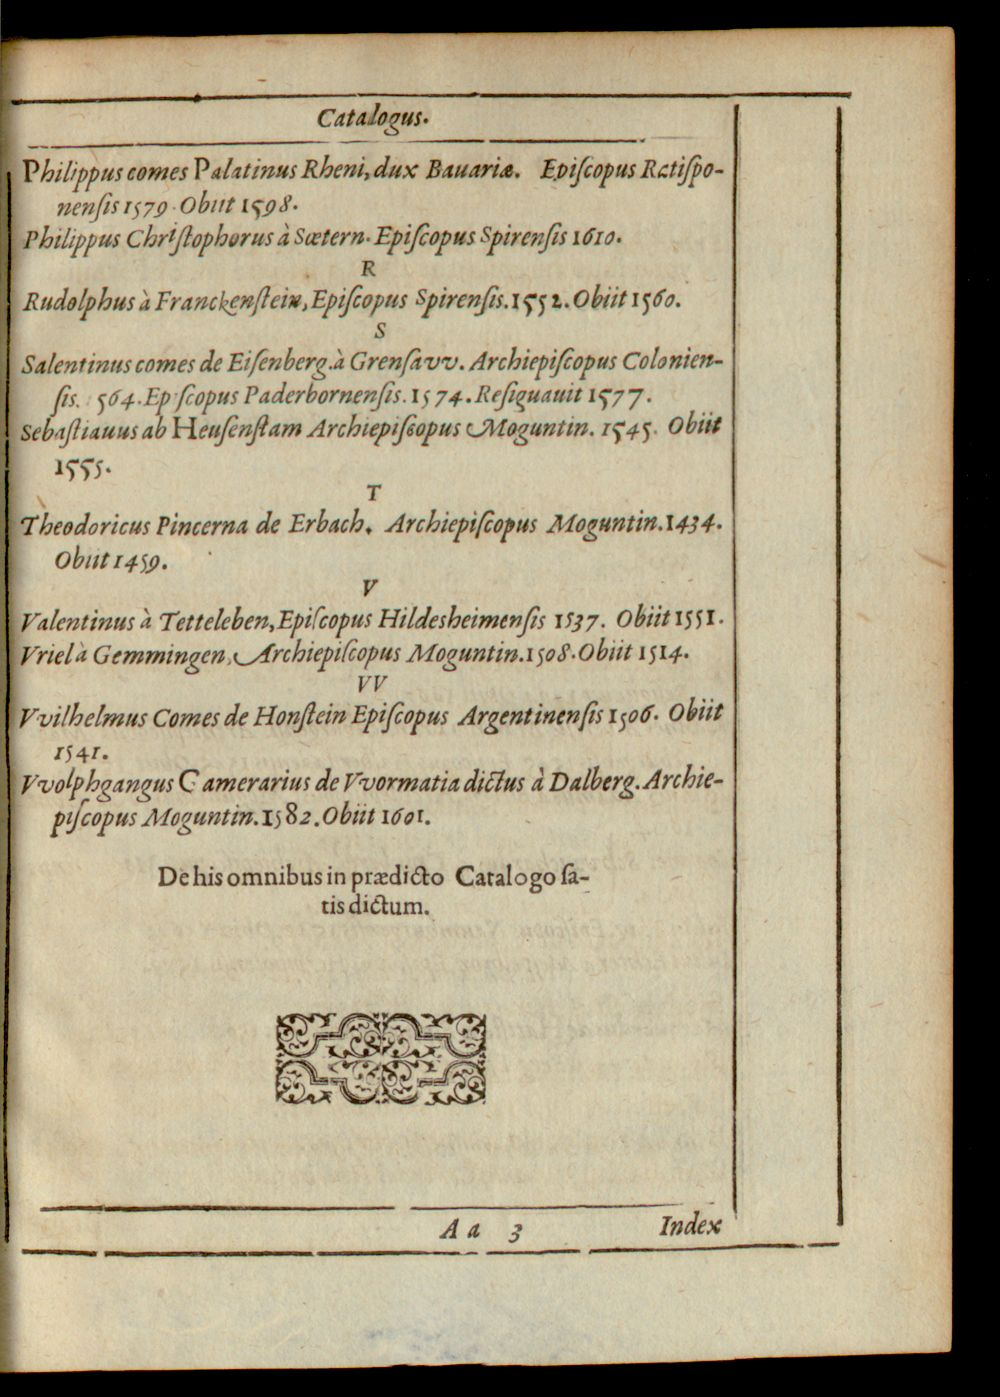 Catalogus.
Philippus comes Palatinus Rheni, dux Bauariæ. Episcopus Ratispo-
nensis 1579. Obiit 1598.
Philippus Christophorus à Sœtern. Episcopus Spirensis 1610.
R
Rudolphus à Franckenstein, Episcopus Spirensis. 1552. Obiit 1560.
S
Salentinus comes de Eisenberg. à Grensavv. Archiepiscopus Colonien-
sis. 564. Ep scopus Paderbornensis. 1574. Resiguauit 1577.
Sebastiauus ab Heusenstam Archiepiscopus Moguntin. 1545. Obiit
1555.
T
Theodoricus Pincerna de Erbach. Archiepiscopus Moguntin. 1434.
Obiit 1459.
V
Valentinus à Tetteleben, Episcopus Hildesheimensis 1537. Obiit 1551.
Vriel à Gemmingen, Archiepiscopus Moguntin. 1508. Obiit 1514.
VV
Vvilhelmus Comes de Honstein Episcopus Argentinensis 1506. Obiit
1541.
Vvolphgangus Camerarius de Vvormatia dictus à Dalberg. Archie-
piscopus Moguntin. 1582. Obiit 1601.
De his omnibus in prædicto Catalogo sa-
tis dictum.
A a 3 Index